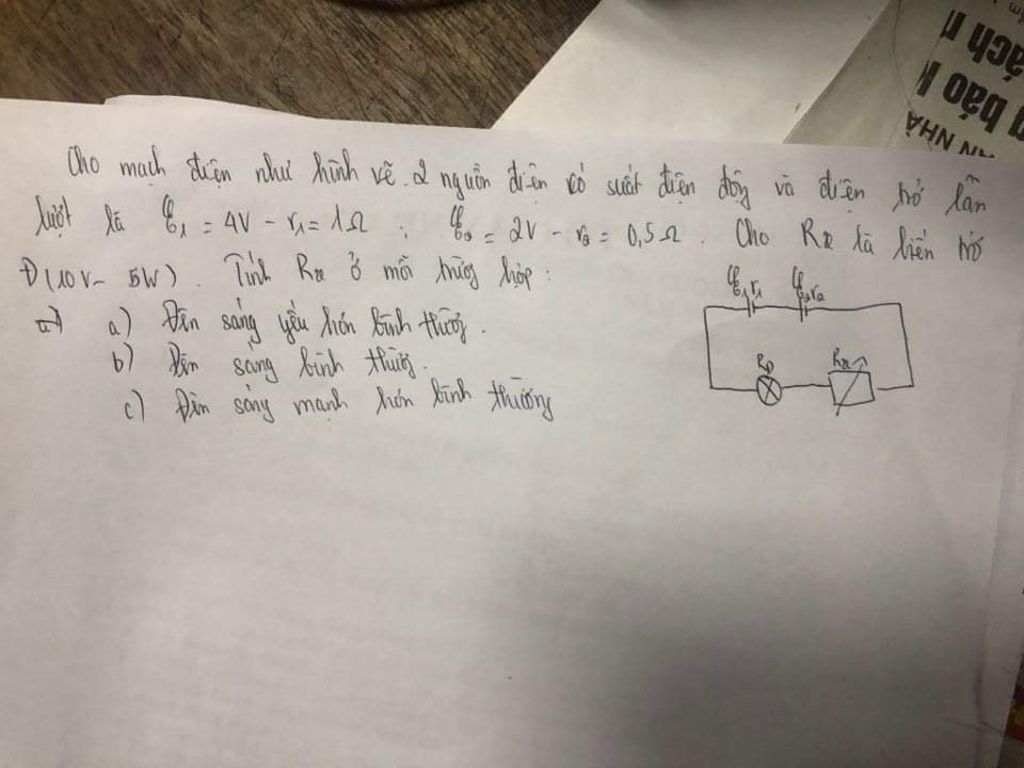 Cho mạch điện như hình vẽ. 2 nguồn điện có suất điện động và điện trở lần
lượt là ξ₁ = 4V - r₁ = 1Ω ; ξ₂ = 2V - r₂ = 0,5Ω. Cho Rx là biến trở
Đ(10V - 5W). Tính Rx ở mỗi trường hợp:
a) Đèn sáng yếu hơn bình thường.
b) Đèn sáng bình thường.
c) Đèn sáng mạnh hơn bình thường
ξ₁r₁ ξ₂r₂
RĐ Rx
ách
g báo
NHÀ